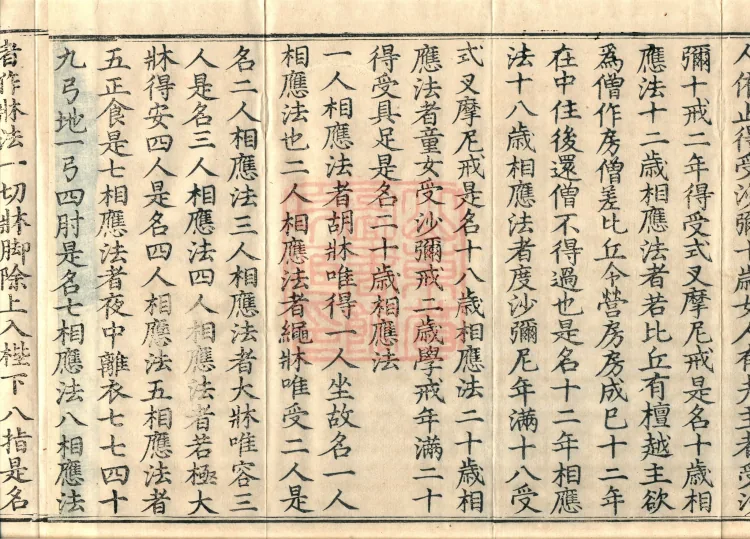 得受沙彌十歲女人有夫主者受沙
彌十戒二年得受式叉摩尼戒是名十歲相
應法十二歲相應法者若比丘有檀越主欲
爲僧作房僧差比丘令營房房成已十二年
在中住後還僧不得過也是名十二年相應
法十八歲相應法者度沙彌尼年滿十八受
式叉摩尼戒是名十八歲相應法二十歲相
應法者童女受沙彌戒二歲學戒年滿二十
得受具足是名二十歲相應法
一人相應法者胡牀唯得一人坐故名一人
相應法也二人相應法者繩牀唯受二人是
名二人相應法三人相應法者大牀唯容三
人是名三人相應法四人相應法者若極大
牀得安四人是名四人相應法五相應法者
五正食是七相應法者夜中離衣七七四十
九弓地一弓四肘是名七相應法八相應法
者作牀法一切牀脚除上入梐下八指是名